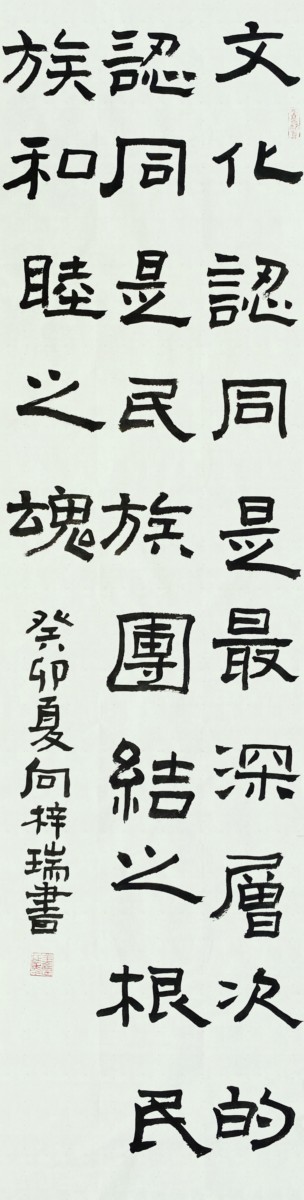 文化認同是最深層次的
認同是民族團結之根民
族和睦之魂
癸卯夏向梓瑞書